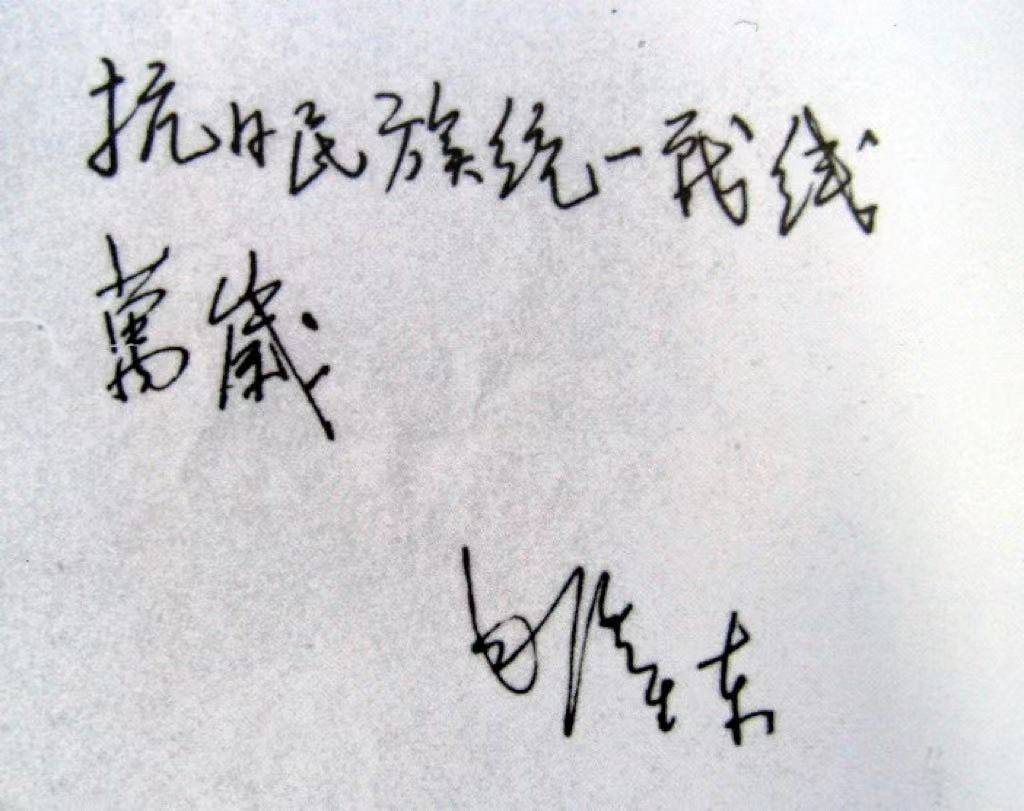 抗日民族统一战线
萬歲
东